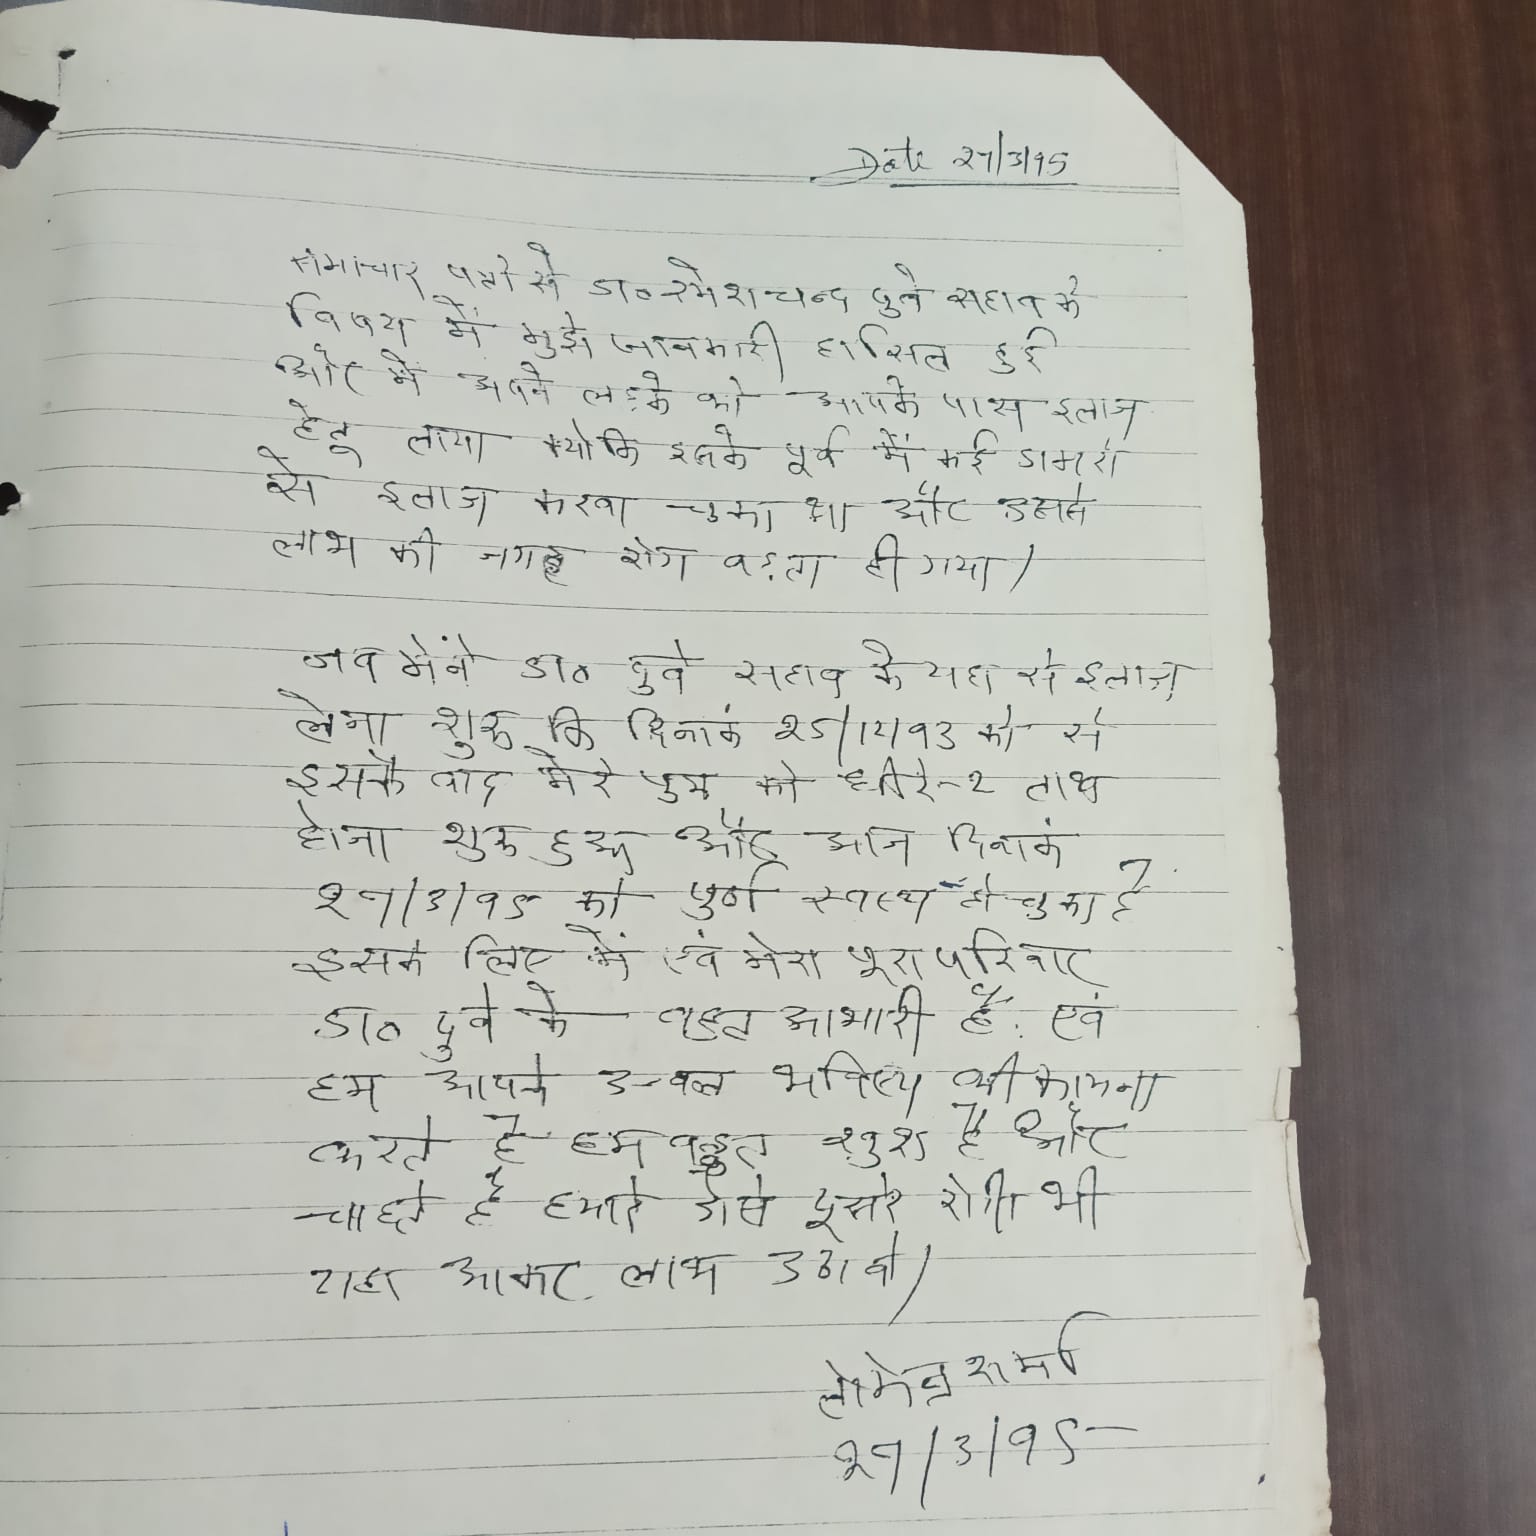 Date २९/3/९5
समाचार पत्रो से डा० रमेशचन्द दुबे सहाब के
विषय में मुझे जानकारी हासिल हुई
और में अपने लड़के को आपके पास इलाज
हेतू लाया क्योकि इसके पूर्व में कई डाक्टरों
से इलाज करवा चुका था और उससे
लाभ की जगह रोग बड़ता ही गया।
जब मेंने डा० दुबे सहाब के यहा से इलाज
लेना शुरू कि दिनांक २५/12/९३ को से
इसके बाद मेरे पुत्र को धीरे-२ लाभ
होना शुरू हुआ और आज दिनांक
२९/३/९५ को पुर्ण स्वस्थ हो चुका है
इसके लिए में एवं मेरा पूरा परिवार
डा० दुबे के बहुत आभारी हैं. एवं
हम आपके उज्वल भविष्य की कामना
करते है हम बहुत खुश हैं और
चाहते हैं हमारे जेसे दूसरे रोगी भी
यहा आकर लाभ उठावे।
शर्मा
२९/३/९५